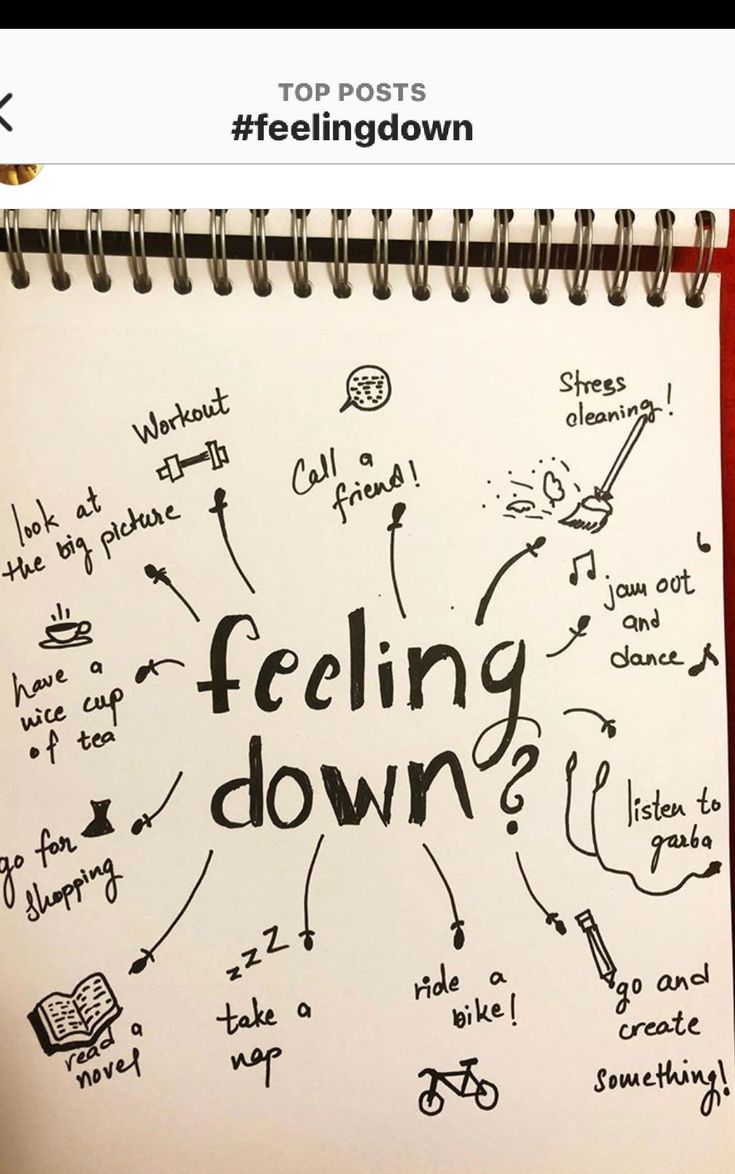 TOP POSTS
#feelingdown
Workout
Call a
friend!
Stress
cleaning!
look at
the big picture
jam out
and
dance
have a
nice cup
of tea
feeling
down?
go for
shopping
listen to
garba
read a
novel
zzz
take a
nap
ride a
bike!
go and
create
something!